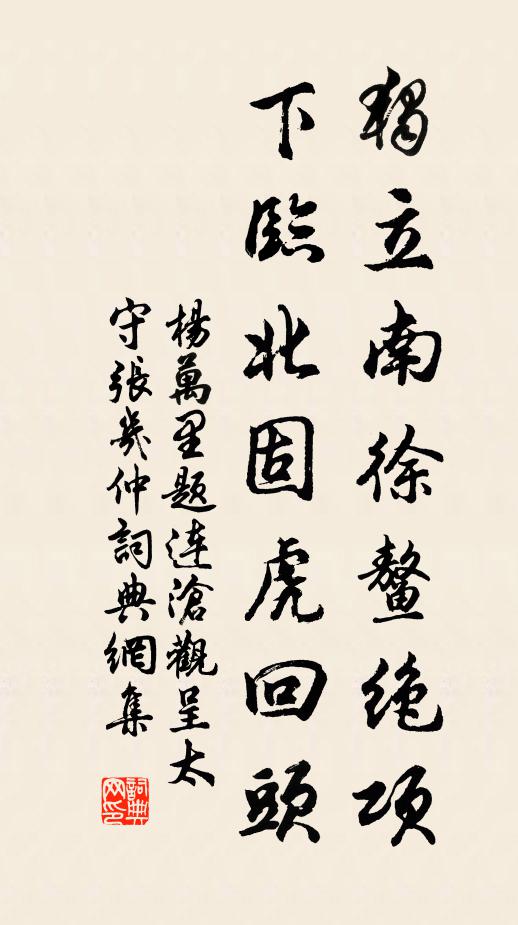 獨立南徐鼇絶項
下臨北固虎回頭
楊萬里題连滄觀呈太
守張幾仲詞典網集
詞典网印